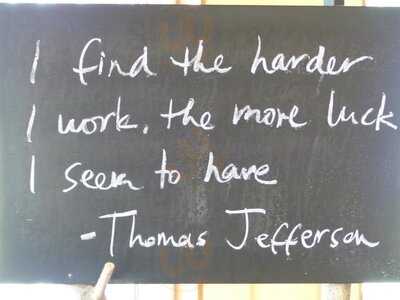 I find the harder
I work, the more luck
I seem to have
- Thomas Jefferson